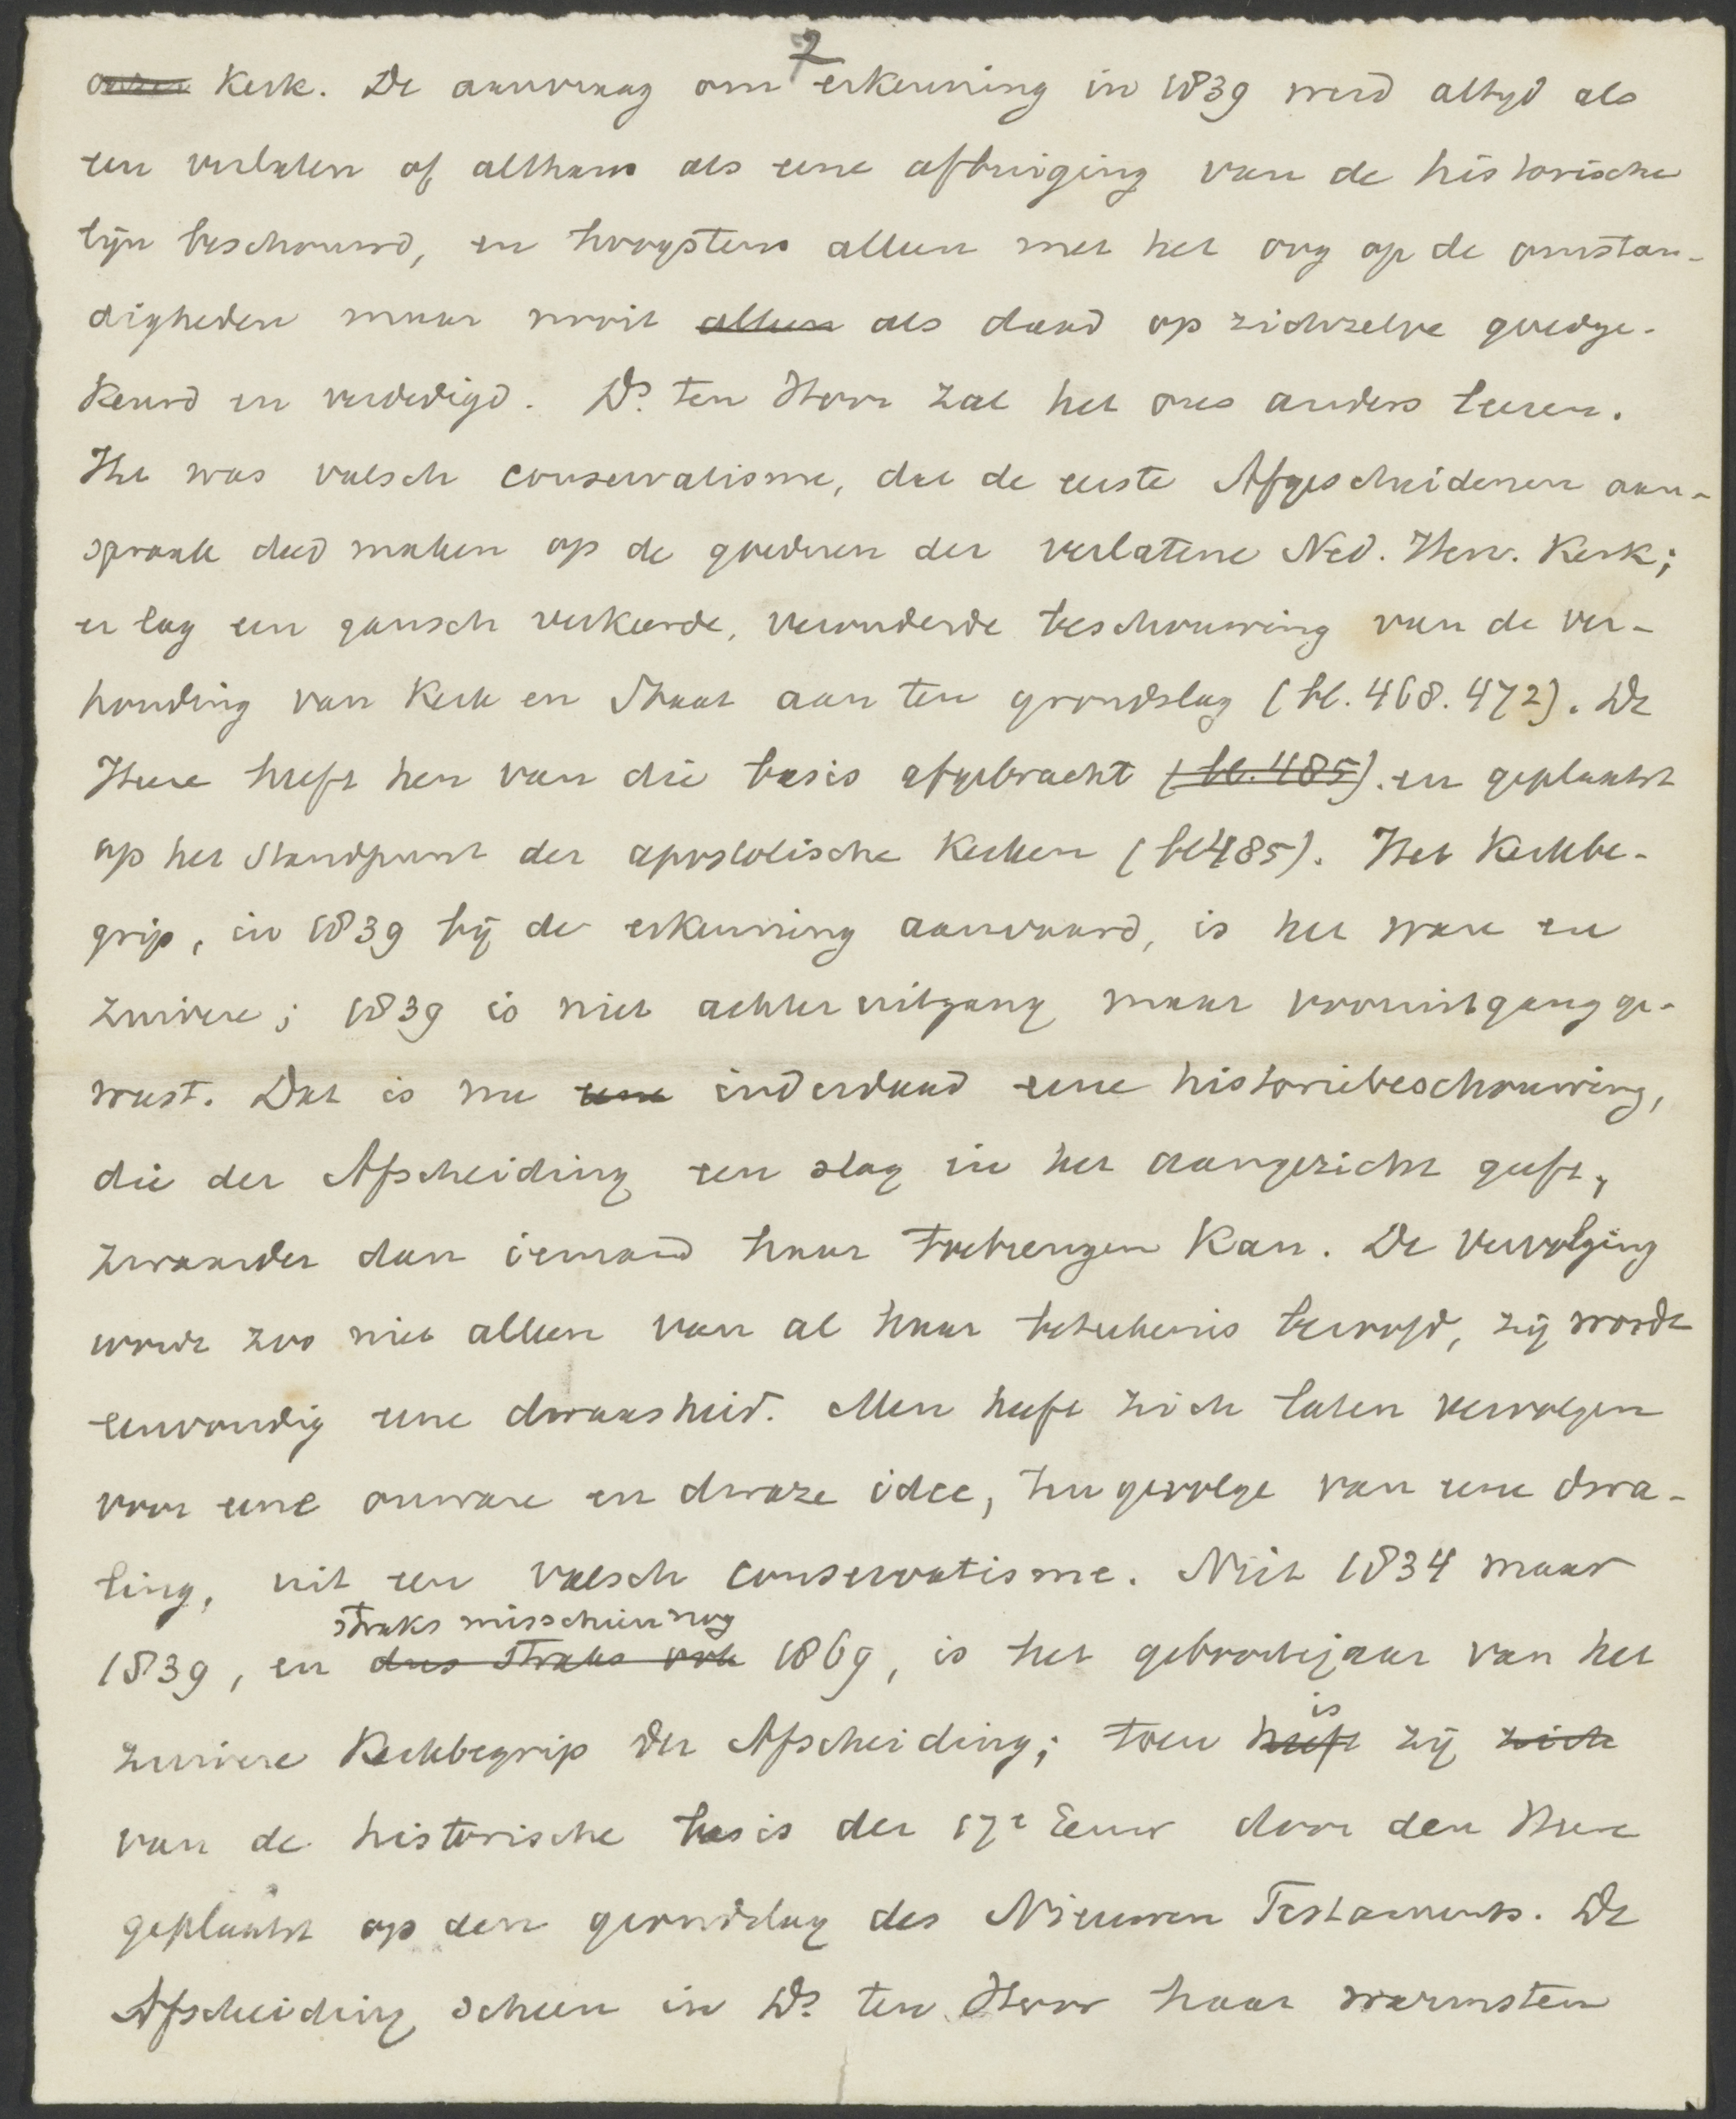 2
onzer Kerk. De aanvraag om erkenning in 1839 werd altyd als
een verlaten of althans als eene afbuiging van de historische
lijn beschouwd, en hoogstens alleen met het oog op de omstan-
digheden maar nooit alleen als daad op zichzelve goedge-
keurd en verdedigd. Ds. ten Hoor zal het ons anders leeren.
Het was valsch conservatisme, dat de eerste Afgescheidenen aan-
spraak deed maken op de goederen der verlatene Ned. Herv. Kerk;
er lag een gansch verkeerde, verouderde beschouwing van de ver-
houding van Kerk en Staat aan ten grondslag (bl. 468. 472). De
Heere heeft hen van die basis afgebracht (bl. 485). en geplaatst
op het Standpunt der apostolische Kerken (bl 485). Het Kerkbe-
grip, in 1839 bij de erkenning aanvaard, is het ware en
zuivere; 1839 is niet achteruitgang maar vooruitgang ge-
weest. Dat is nu eene inderdaad eene historiebeschouwing,
die der Afscheiding een slag in het aangezicht geeft,
zwaarder dan iemand haar toebrengen kan. De vervolging
wordt zoo niet alleen van al haar beteekenis beroofd, zij wordt
eenvoudig eene dwaasheid. Men heeft zich laten vervolgen
voor eene onware en dwaze idee, tengevolge van eene dwa-
ling, uit een valsch conservatisme. Niet 1834 maar
straks misschien nog
1839, en dus straks ook 1869, is het geboortejaar van het
is
zuivere Kerkbegrip der Afscheiding; toen heeft zij zich
van de historische basis der 17e Eeuw door den Heere
geplaatst op den grondslag des Nieuwen Testaments. De
Afscheiding scheen in Ds. ten Hoor haar warmsten